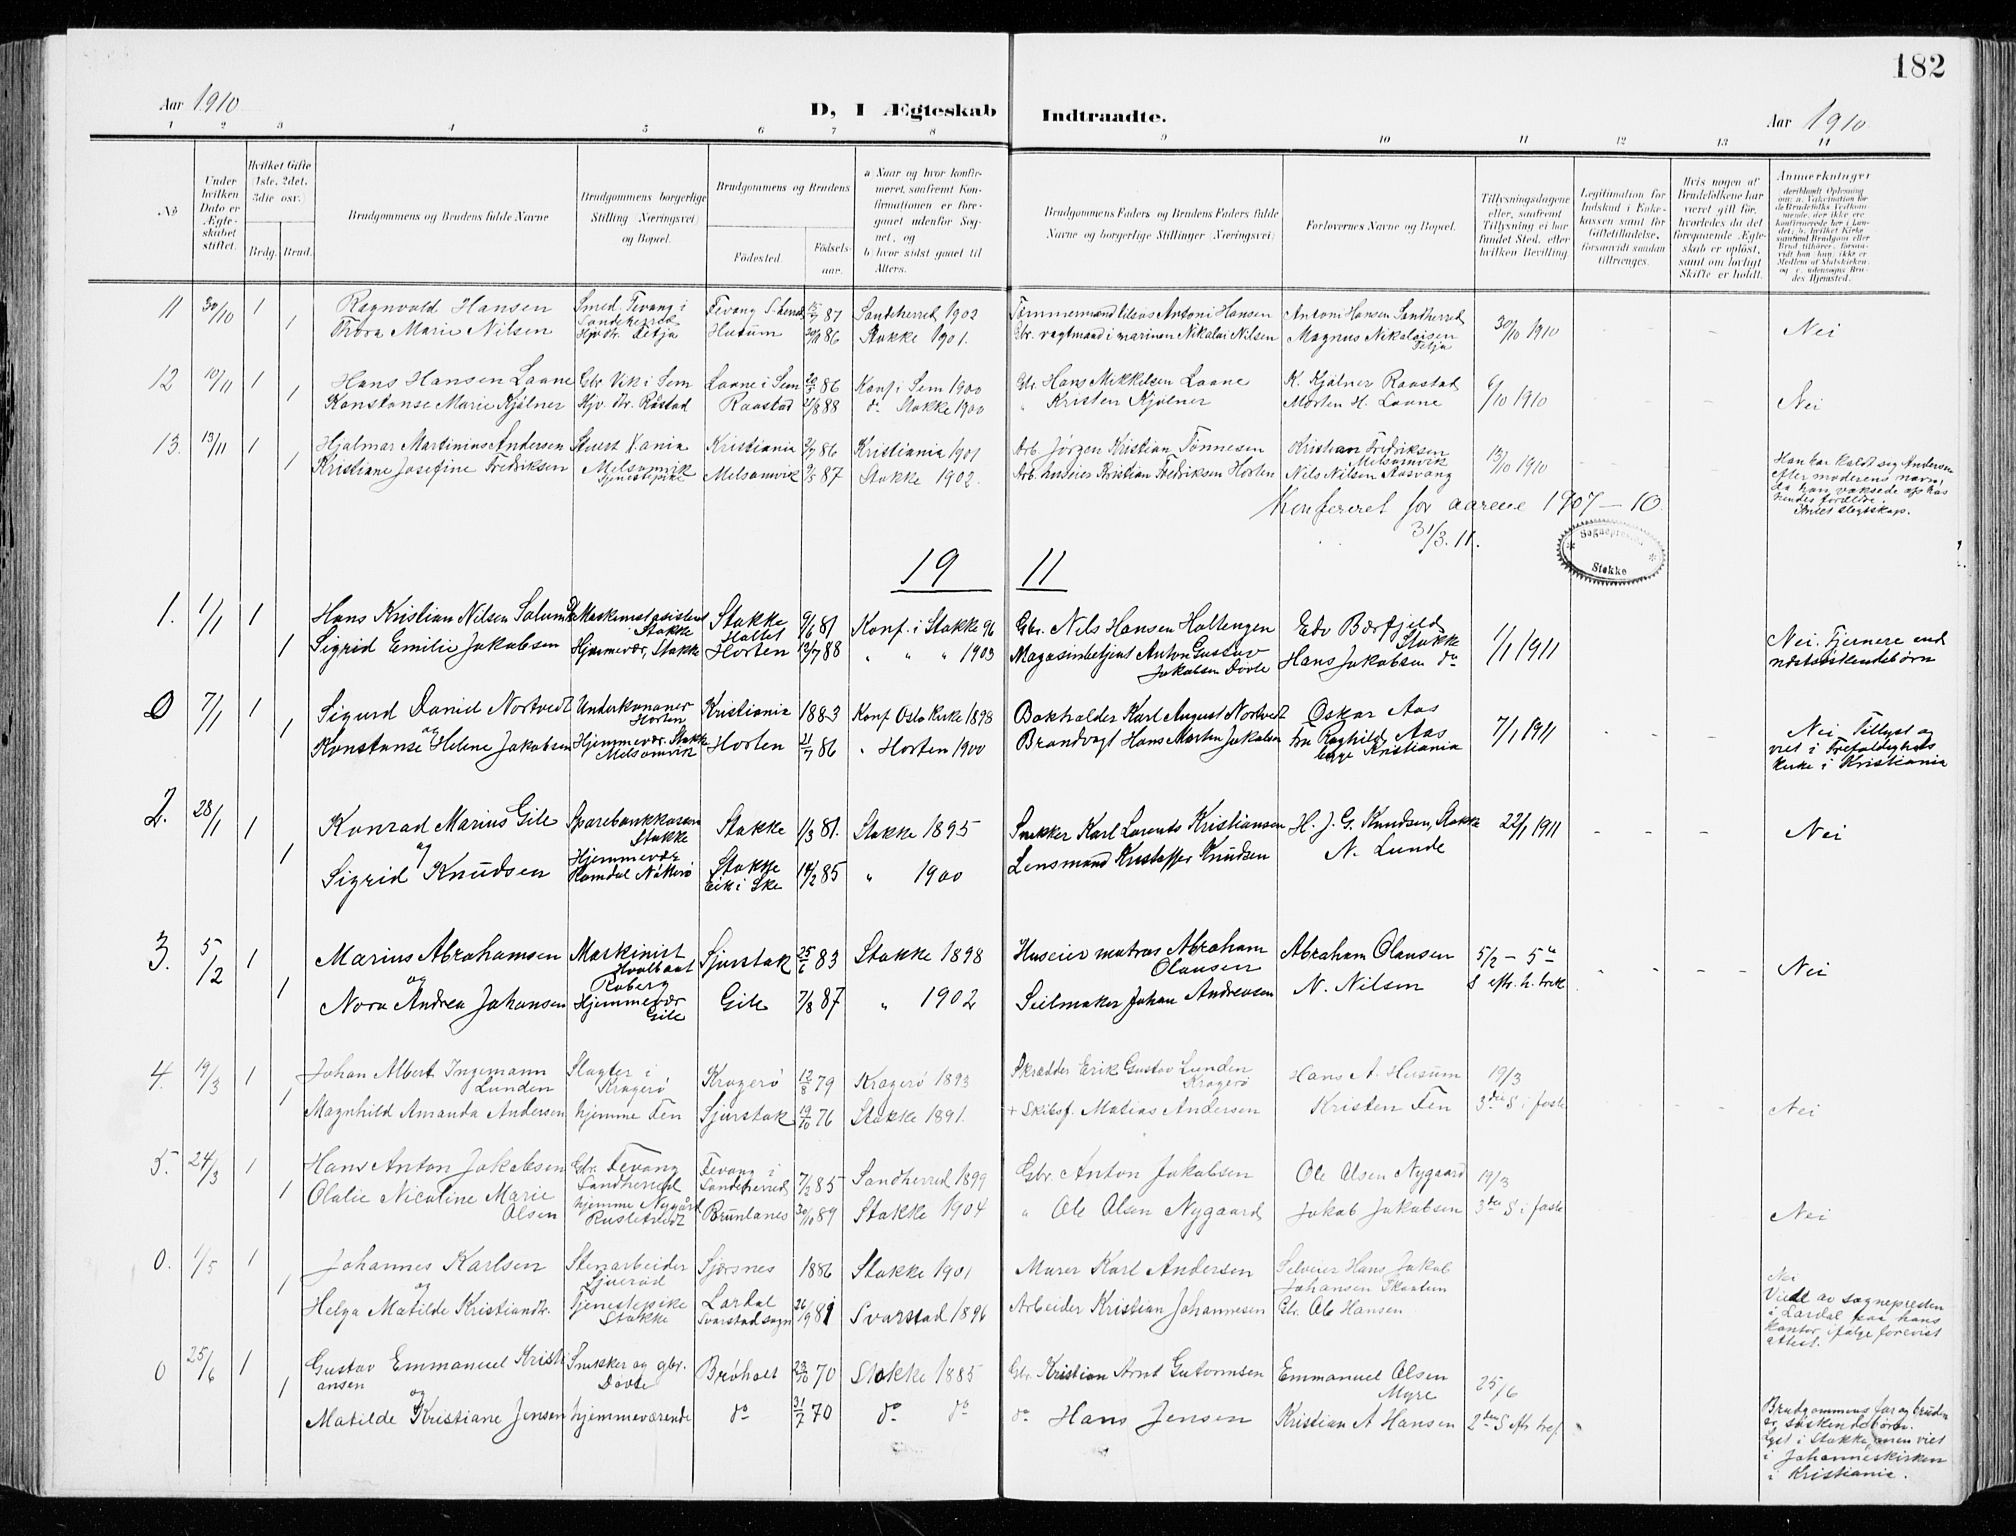 182
Aar 1910
D, I Ægteskab Indtraadte.
Aar 1910
1 2 3 4 5 6 7 8 9 10 11 12 13 14
No
Under hvilken Dato er Ægteskabet stiftet.
Hvilket Gifte (1ste, 2det, 3die osv.)
Brdg. Brud.
Brudgommens og Brudens fulde Navne
Brudgommens borgerlige Stilling (Næringsvei) og Bopæl.
Brudgommens og Brudens
Fødested. Fødselsaar.
a Naar og hvor konfirmeret, samfremt Konfirmationen er foregaaet udenfor Sognet, og
b hvor sidst gaaet til Alters.
Brudgommens Faders og Brudens Faders fulde Navne og borgerlige Stillinger (Næringsvei)
Forlovernes Navne og Bopæl.
Tillysningsdagene eller, saafremt Tillysning ei har fundet Sted, efter hvilken Bevilling.
Legitimation for Indskud i Enkekassen samt for Giftetilladelse, forsaavidt saadan tiltrænges.
Hvis nogen af Brudefolkene har været gift før, hvorledes da det foregaaende Ægteskab er opløst, samt om lovligt Skifte er holdt.
Anmerkninger
11 30/10 1 Ragnvald Hansen Smed, Fevang i Sandeherred Fevang S.herred 15/7 87 Sandeherred 1902 Tømmermand Antoni Hansen Antoni Hansen Sandherred
1 Thora Marie Nilsen Hjv. Dr. Fetja Husum 20/11 86 Stokke 1901. Gbr. vagtmand i marinen Nikolai Nilsen Magnus Nikolaisen Fetja 30/10 1910 Nei
12 10/11 1 Hans Hansen Laane Gbr. Vik i Sem Laane i Sem 86 Konf. i Sem 1900 Gbr. Hans Mikkelsen Laane K. Kjølner Raastad
1 Konstanse Marie Kjølner Hjv. Dr. Råstad Raastad 2/8 88 do Stokke 1900 " Kristen Kjølner Morten H. Laane 6/10 1910 Nei
13. 13/11 1 Hjalmar Martinius Andersen Stuert Kristiania 2/7 86 Kristiania 1901 Arb. Jørgen Kristian Tønnesen Kristian Fredriksen Melsomvik
1 Kristiane Josefine Fredriksen Melsomvik Tjenestepike Melsomvik 9/5 87 Stokke 1902. Arb. Kristian Fredriksen Horten Nils Nilsen Aasvang 13/10 1910
Han har kaldt sig Andersen
efter moderens navn,
da han voksede op hos
hendes forældre.
Intet slegtskap.
Konfereret for aarene 1907 – 10
31/3. 11.
Sogneprest Stokke
19 11
1. 1/1 1 Hans Kristian Nilsen Maskinistassistent Stokke Stokke Holtet 9/6 81 Konf. i Stokke 96 Gbr. Nils Hansen Holtengen Edv Bærfjeld Stokke
1 Sigrid Emilie Jakobsen Hjemmevær, Stokke Horten 12/7 88 " " " 1903 Magasinbetjent Anton Gustav Jakobsen Døvle Hans Jakobsen do 1/1 1911
Nei. Fjernere end
næstsøskendebørn
0 7/1 1 Sigurd Daniel Nortvedt Underkanoner Horten Kristiania 1883 Konf. Oslo kirke 1898 Bokholder Karl August Nortvedt Oskar Aas
og
1 Konstanse Helene Jakobsen Hjemmevær. Stokke Melsomvik Horten 21/7 86 " Horten 1900 Brandvagt Hans Martin Jakobsen Fru Raghild Aas begge Kristiania 7/1 1911
Nei Tillyst og
viet i Trefoldigheds
kirke i Kristiania
2. 28/1 1 Konrad Marius Gile Sparebankkasserer Stokke Stokke 1/3 81. Stokke 1895 Snekker Karl Larents Kristiansen H. J. G. Knudsen, Stokke 22/1 1911 Nei
og
1 Sigrid Knudsen Hjemmevær Homdal Nøterø Stokke Eik i Ske 14/2 85 " 1900 Lensmand Kristoffer Knudsen N. Lunde
3. 5/12 1 Marius Abrahamsen Maskinist Hvalbaat Roberg Sjuestok 25/6 83 Stokke 1898 Huseier matros Abraham Olausen Abraham Olausen 5/2 – 5te
og
1 Nora Andrea Johansen Hjemmevær Gile Gile 7/8 87 " 1902 Seilmaker Johan Andreasen N. Nilsen S eftr. h. trek. Nei
4. 19/3 1 Johan Albert Ingemann Lunden Slagter i Kragerø Kragerø 12/8 79 Kragerø 1893 Skrædder Erik Gustav Lunden Kragerø Hans A. Husum 19/3
1 Magnhild Amanda Andersen hjemme Fen Sjuestok 19/10 76 Stokke 1891. + Skibsf. Matias Andersen Kristen Fen 3die S i faste Nei
5. 24/3 1 Hans Anton Jakobsen Gbr. Fevang Sandherred Fevang i Sandeherred 7/2 85 Sandherred 1899 Gbr. Anton Jakobsen Ole Olsen Nygaard 19/3
1 Olalie Nicoline Marie Olsen hjemme Nygård Brunlanes 30/10 89 Stokke 1904 " Ole Olsen Nygaard Jakob Jakobsen 3die S i faste Nei
0. 1/5 1 Johannes Karlsen Stenarbeider Sjærsnes 1886 Stokke 1901 Murer Karl Andersen Selveier Hans Jakob Johansen Skaatem
og
1 Helga Matilde Kristiandtr. Tjenestepike Stokke Lardal Svarstad sogn 26/9 81 Svarstad 1896 Arbeider Kristian Johannesen Gbr. Ole Hansen
Nei
Viet av sognepresten
i Lardal paa hans
kontor ifølge forevist
attest.
0 25/6 1 Gustav Emmanuel Kristiansen Snekker og gbr. Døvle Brøholt 23/10 70 Stokke 1885 Gbr. Kristian Arnt Gutormsen Emmanuel Olsen Myre 25/6
og
1 Matilde Kristiane Jensen hjemmeværende do 31/7 70 do do do Hans Jensen Kristian A Hansen 2den S eftr tref.
Brudgommens far og bruden
er søskendebørn.
Lyst i Stokke, men viet
i Johanneskirken
i Kristiania.